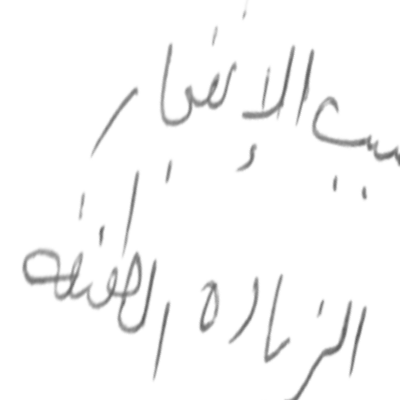 سبب الإنفجار
الزياده الطفيفه